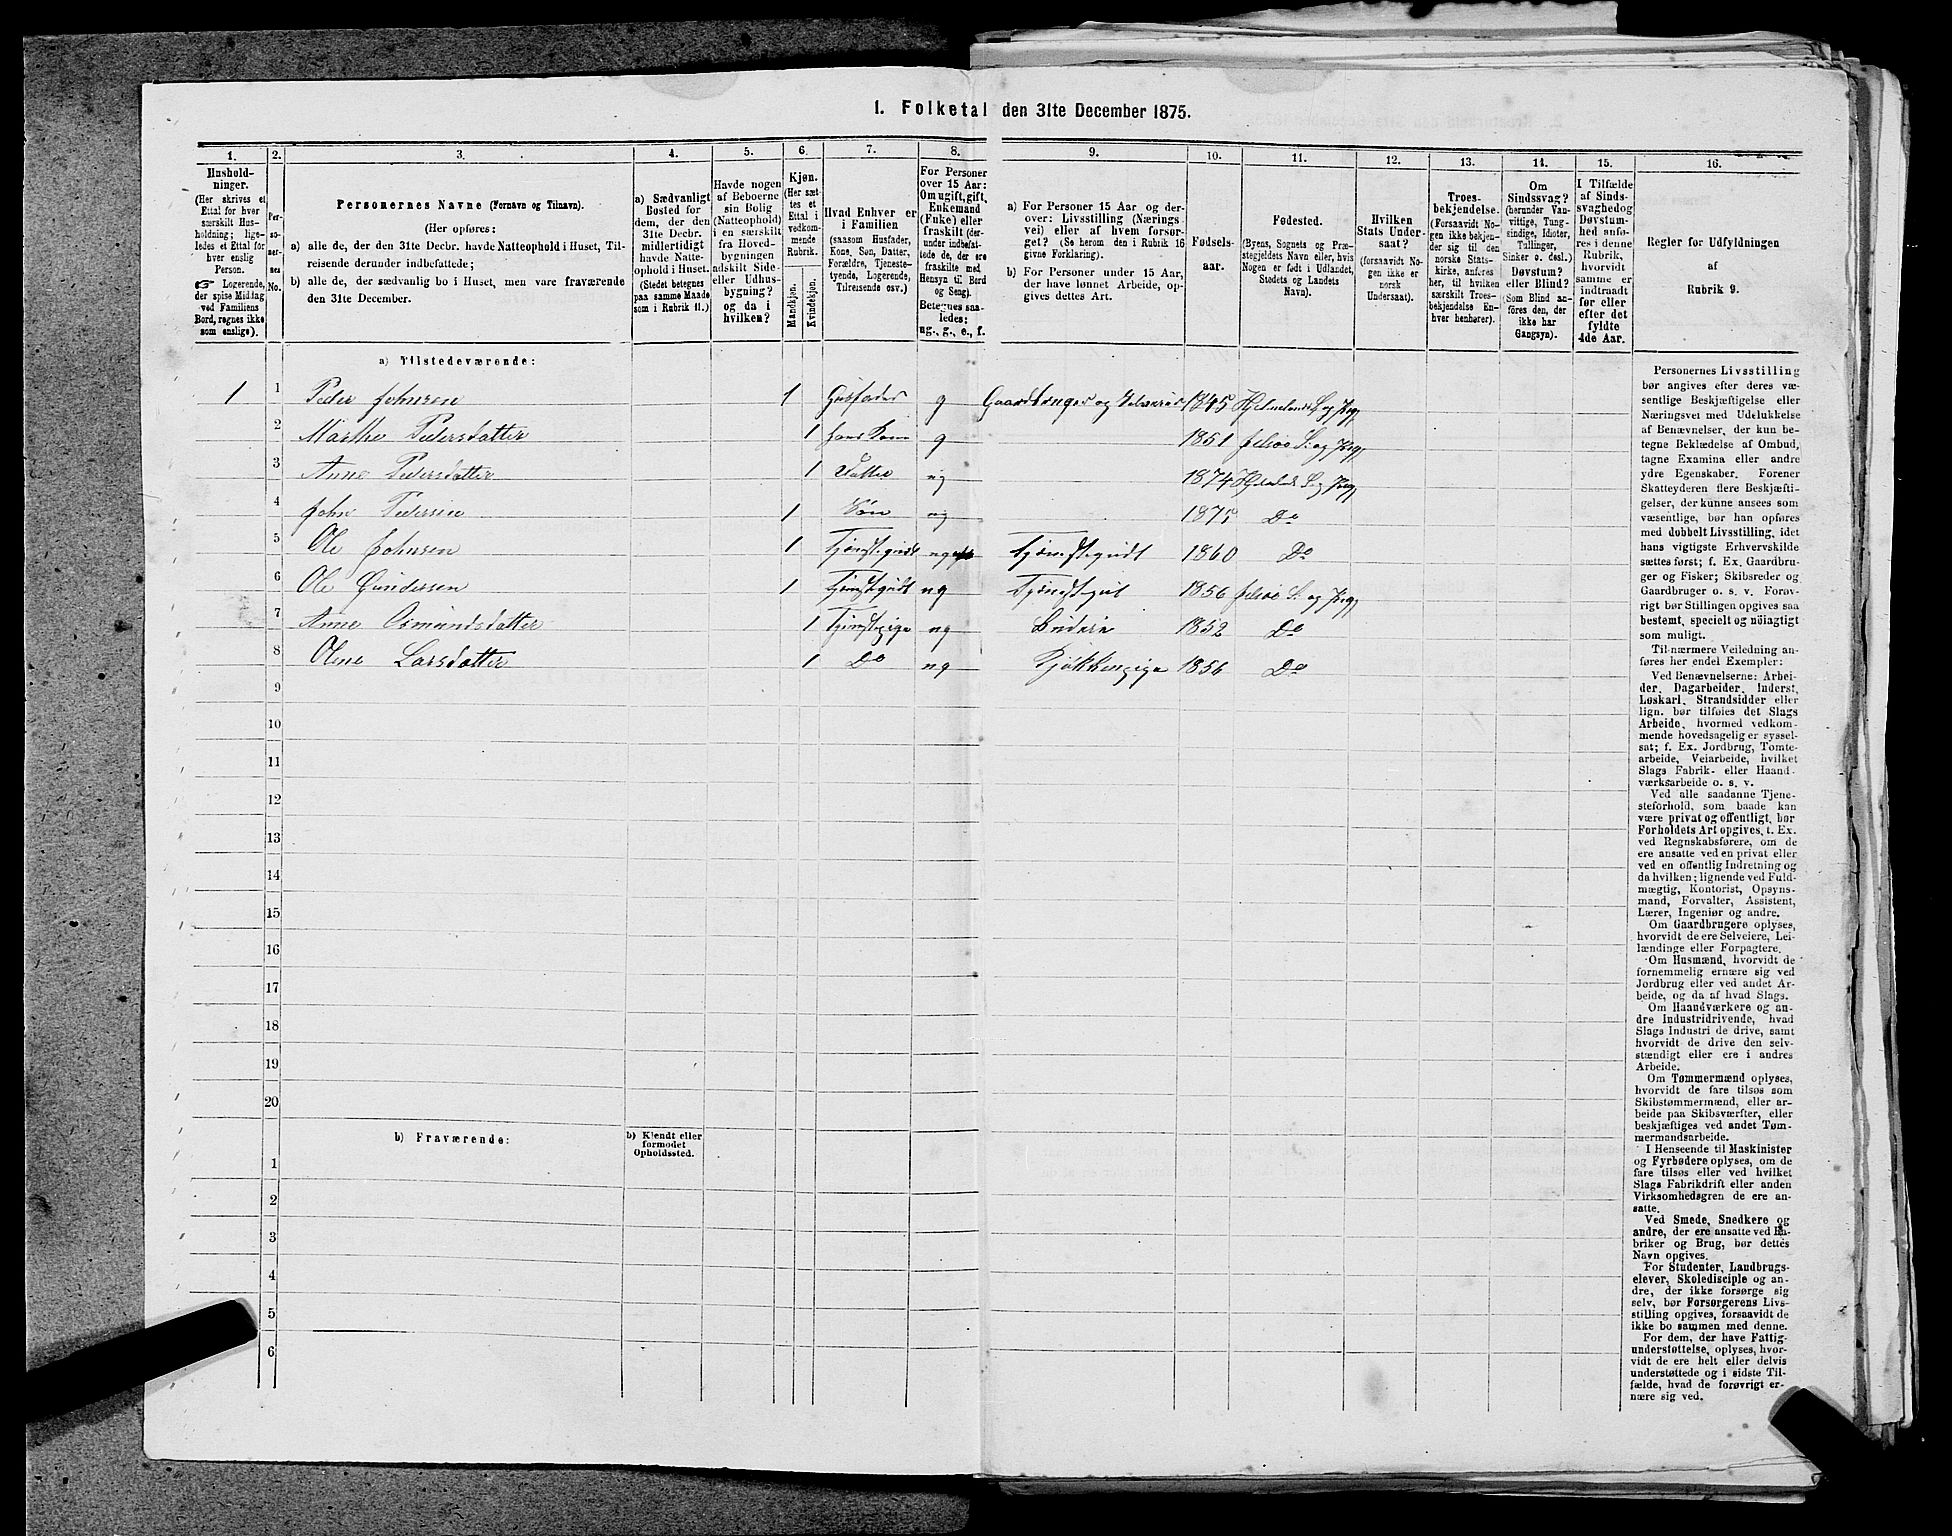 1. Folketal den 31te December 1875.
1. 2. 3. 4. 5. 6. 7. 8. 9. 10. 11. 12. 13. 14. 15. 16.
Hushold-
ninger.
(Her skrives et
Ettal for hver
særskilt Hus-
holdning; lige-
ledes et Ettal for
hver enslig
Person.
☞ Logerende,
der spise Middag
ved Familiens
Bord, regnes ikke
som enslige).
Per-
so-
ner-
nes
No.
Personernes Navne (Fornavn og Tilnavn).
(Her opføres:
a) alle de, der den 31te Decbr. havde Natteophold i Huset, Til-
reisende derunder indbefattede;
b) alle de, der sædvanlig bo i Huset, men vare fraværende
den 31te December.
a) Sædvanligt
Bosted for
dem, der den
31te Decbr.
midlertidigt
havde Natte-
ophold i Huset.
(Stedet betegnes
paa samme Maade
som i Rubrik 11.)
Havde nogen
af Beboerne
sin Bolig
(Natteophold)
i en særskilt
fra Hoved-
bygningen
adskilt Side-
eller Udhus-
bygning?
og da i
hvilken?
Kjøn.
(Her sæt-
tes et
Ettal i
vedkom-
mende
Rubrik.
Mandkjøn.
Kvindekjøn.
Hvad Enhver er
i Familien
(saasom Husfader,
Kone, Søn, Datter,
Forældre, Tjeneste-
tyende, Logerende,
Tilreisende osv.)
For Personer
over 15 Aar:
Om ugift, gift,
Enkemand
(Enke) eller
fraskilt (der-
under indbefat-
tede de, der ere
fraskilte med
Hensyn til Bord
og Seng).
Betegnes saa-
ledes:
ug., g., e., f.
a) For Personer 15 Aar og der-
over: Livsstilling (Nærings
vei) eller af hvem forsør-
get? (Se herom den i Rubrik 16
givne Forklaring).
b) For Personer under 15 Aar,
der have lønnet Arbeide, op-
gives dettes Art.
Fødsels-
aar.
Fødested.
(Byens, Sognets og Præ-
stegjeldets Navn eller, hvis
Nogen er født i Udlandet,
Stedets og Landets
Navn).
Hvilken
Stats Under-
saat?
(forsaavidt No-
gen ikke er
norsk
Undersaat).
Troes-
bekjendelse.
(Forsaavidt No-
gen ikke bekjen-
der sig til den
norske Stats-
kirke, anføres
her, til hvilken
særskilt Troes-
bekjendelse En-
hver henhører).
Om
Sindssvag?
(herunder Van-
vittige, Tung-
sindige, Idioter,
Tullinger,
Sinker o. desl.)
Døvstum?
eller Blind?
(Som Blind an-
føres den, der
ikke har
Gangsyn).
I Tilfælde
af Sinds-
svaghed og
Døvstum-
hed anfø-
res i denne
Rubrik,
hvorvidt
samme er
indtraadt
før eller
efter det
fyldte
4de Aar.
Regler for Udfyldningen
af
Rubrik 9.
a) Tilstedeværende:
1 1 Peder Johnsen 1 Husfader g Gaardbruger og 1845
2 Marthe Pedersdatter 1 hans Kone g 1851 Jelsøe S. og Prg
3 Anne Pedersdatter 1 Datter ug 1874
4 John Pedersen 1 Søn ug 1875 Do
5 Ole Johnsen 1 Tjenstegudt ug Tjenestegudt 1860 Do
6 Ole Gundersen 1 Tjenstegudt ug Tjenestegut 1856 Jelsøe S. og Prg
7 Anne Osmundsdatter 1 Tjenstepige ug Budeie 1852 Do
8 Olene Larsdatter 1 Do ug Kjøkkenpige 1856 Do
9
10
11
12
13
14
15
16
17
18
19
20
b) Fraværende:
b) Kjendt eller
formodet
Opholdssted.
1
2
3
4
5
6
Personernes Livsstilling
bør angives efter deres væ-
sentlige Beskjæftigelse eller
Næringsvei med Udelukkelse
af Benævnelser, der kun be-
tegne Beklædelse af Ombud,
tagne Examina eller andre
ydre Egenskaber. Forener
Skatteyderen flere Beskjæfti-
gelser, der kunne ansees som
væsentlige, bør han opføres
med dobbelt Livsstilling, idet
hans vigtigste Erhvervskilde
sættes først; f. Ex. Gaardbru-
ger og Fisker; Skibsreder og
Gaardbruger o. s. v. Forøv-
rigt bør Stillingen opgives saa
bestemt, specielt og nøiagtigt
som muligt.
Til nærmere Veiledning an-
føres her endel Exempler:
Ved Benævnelserne: Arbei-
der, Dagarbeider, Inderst,
Løskarl, Strandsidder eller
lign. bør tilføies det Slags
Arbeide, hvormed vedkom-
mende hovedsagelig er syssel-
sat; f. Ex. Jordbrug, Tomte-
arbeide, Veiarbeide, hvilket
Slags Fabrik- eller Haand-
værksarbeide o. s. v.
Ved alle saadanne Tjene-
steforhold, som baade kan
være privat og offentligt, bør
Forholdets Art opgives, t. Ex.
ved Regnskabsførere, om de
ere ansatte ved en privat eller
ved en offentlig Indretning og
da hvilken; lignende ved Fuld-
mægtig, Kontorist, Opsyns-
mand, Forvalter, Assistent,
Lærer, Ingeniør og andre.
Om Gaardbrugere oplyses,
hvorvidt de ere Selveiere, Lei-
lændinge eller Forpagtere.
Om Husmænd, hvorvidt de
fornemmelig ernære sig ved
Jordbrug eller ved andet Ar-
beide, og da af hvad Slags.
Om Haandværkere og an-
dre Industridrivende, hvad
Slags Industri de drive, samt
hvorvidt de drive den selv-
stændigt eller ere i andres
Arbeide.
Om Tømmermænd oplyses,
hvorvidt de fare tilsøs som
Skibstømmermænd, eller ar-
beide paa Skibsværfter, eller
beskjæftiges ved andet Tøm-
mermandsarbeide.
I Henseende til Maskinister
og Fyrbødere oplyses, om de
fare tilsøs eller ved hvilket
Slags Fabrikdrift eller anden
Virksomhedsgren de ere an-
satte.
Ved Smede, Snedkere og
andre, der ere ansatte ved Fa-
briker og Brug, bør dettes
Navn opgives.
For Studenter, Landbrugs-
elever, Skoledisciple og an-
dre, der ikke forsørge sig
selv, bør Forsørgerens Livs-
stilling opgives, forsaavidt de
ikke bo sammen med denne.
For dem, der have Fattig-
understøttelse, oplyses, hvor-
vidt de ere helt eller delvis
understøttede og i sidste Til-
fælde, hvad de forøvrigt er-
nære sig ved.